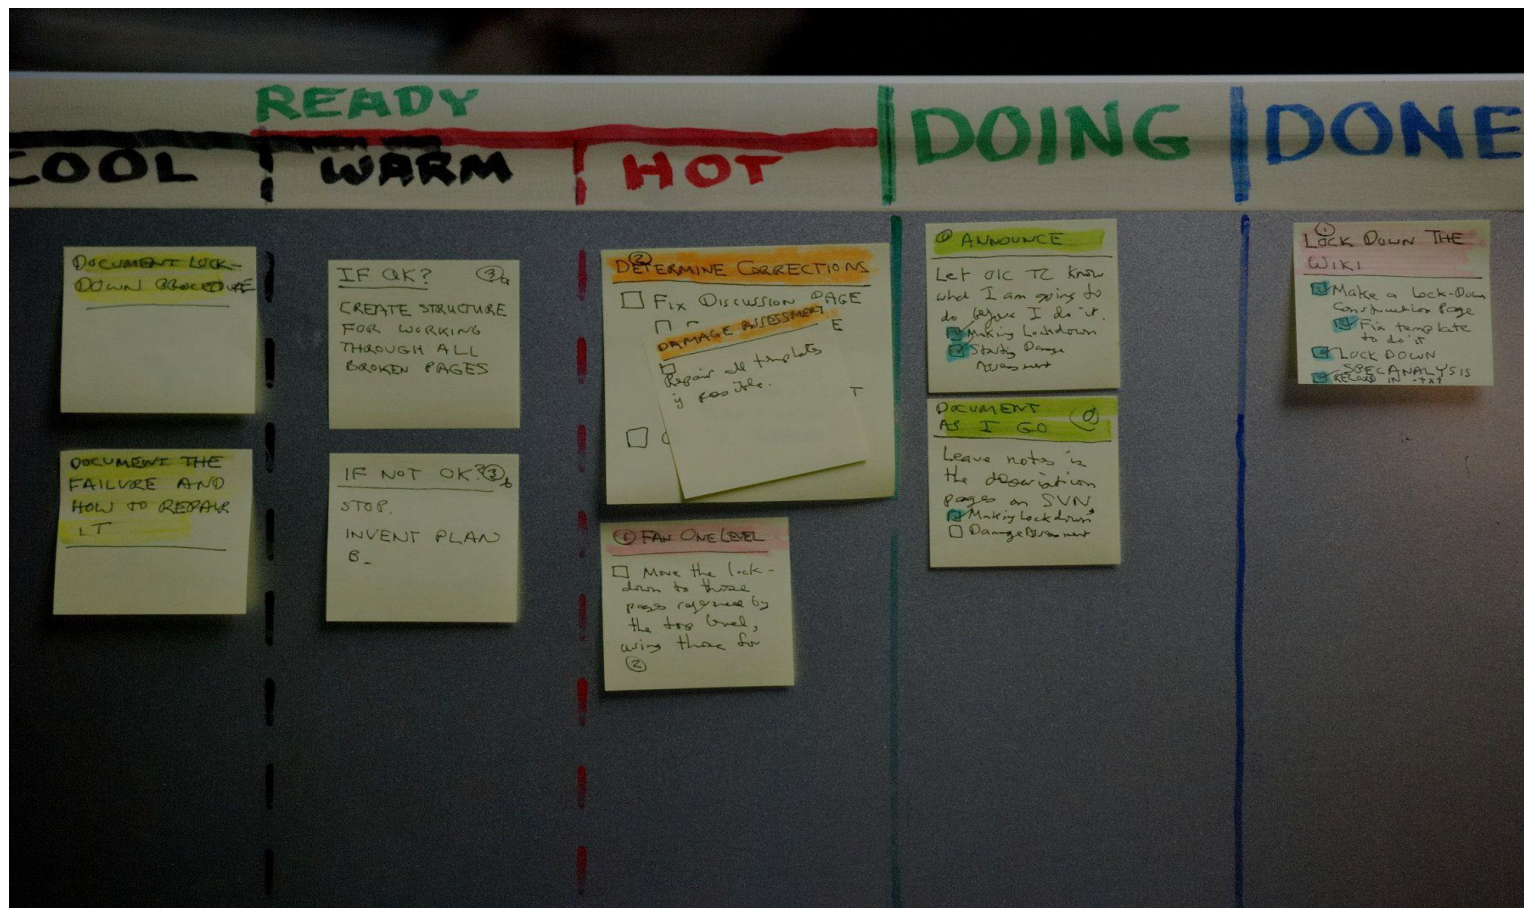 READY
COOL
WARM
HOT
DOING
DONE
DOCUMENT LOCK-
DOWN PROCEDURE
DOCUMENT THE
FAILURE AND
HOW TO REPAIR
IT
IF OK? 3a
CREATE STRUCTURE
FOR WORKING
THROUGH ALL
BROKEN PAGES
IF NOT OK? 3b
STOP.
INVENT PLAN
B_
2
DETERMINE CORRECTIONS
FIX DISCUSSION PAGE
E
T
DAMAGE ASSESSMENT
Repair all templates
if possible.
1 FAN ONE LEVEL
Move the lock-
down to those
pages referenced by
the top level,
using those for
2
ANNOUNCE
Let OIC TC know
what I am going to
do before I do it.
Making Lockdown
Starting Damage
Assessment
DOCUMENT
AS I GO
Leave notes in
the description
pages on SVN
Making Lockdown
Damage Assessment
1
LOCK DOWN THE
WIKI
Make a Lock-Down
Construction Page
Fix template
to do it
LOCK DOWN
SPEC ANALYSIS
RELOAD IN .txt